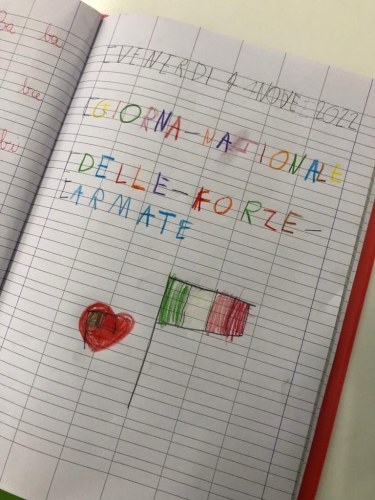 Ba ba
VENERDI 4 NOVE 2022
GIORNA-NAZIONALE
DELLE-FORZE-
ARMATE